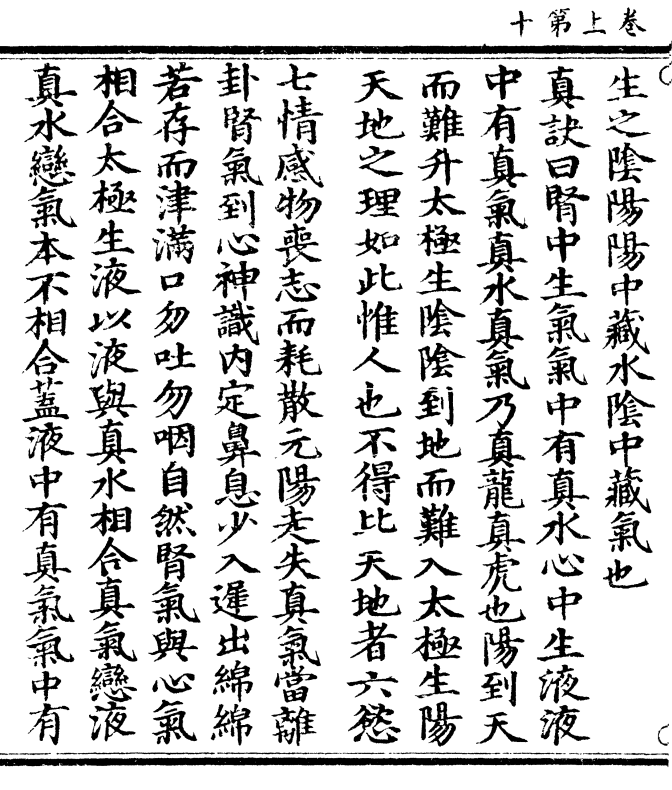 卷上第十
生之陰陽陽中藏水陰中藏氣也
真訣曰腎中生氣氣中有真水心中生液液
中有真氣真水真氣乃真龍真虎也陽到天
而難升太極生陰陰到地而難入太極生陽
天地之理如此惟人也不得比天地者六慾
七情感物喪志而耗散元陽走失真氣當離
卦腎氣到心神識內定鼻息少入遲出綿綿
若存而津滿口勿吐勿咽自然腎氣與心氣
相合太極生液以液與真水相合真氣戀液
真水戀氣本不相合蓋液中有真氣氣中有